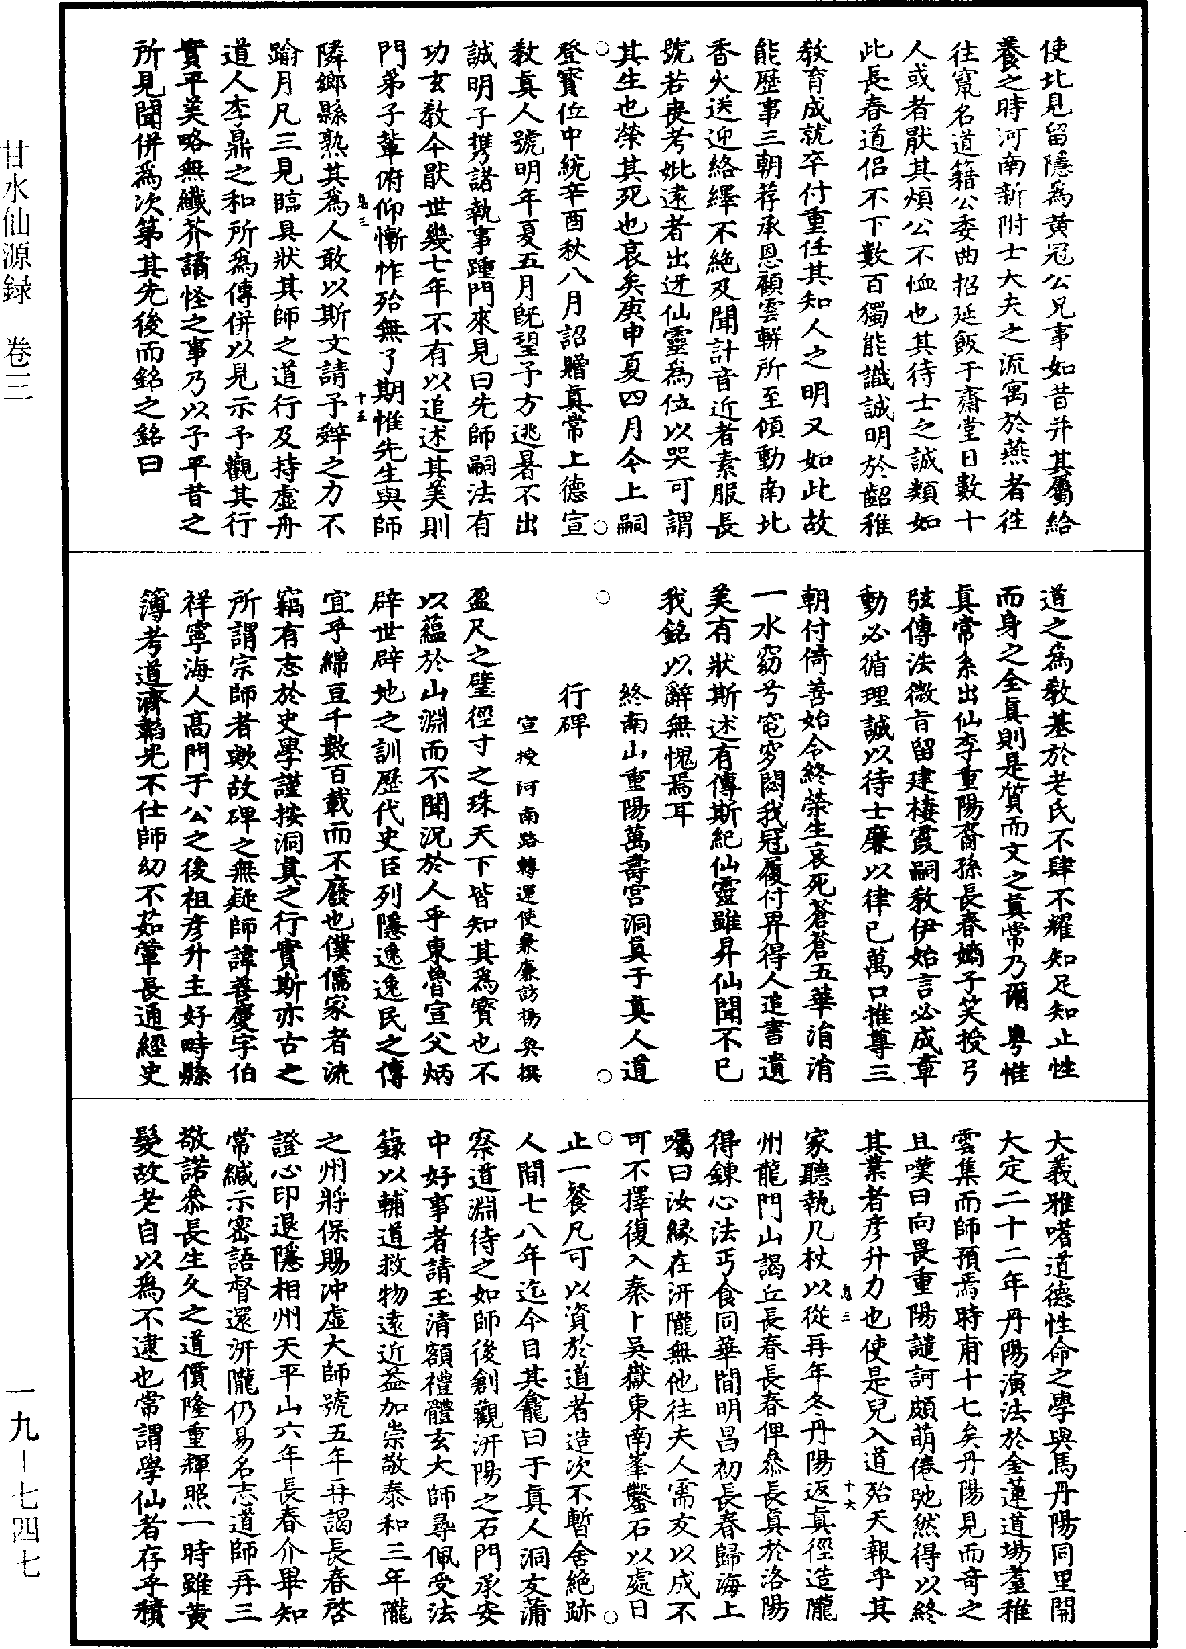 使北見留隱爲黄冠公兄事如昔并其屬給
養之時河南新附士大夫之流寓於燕者往
往竄名道籍公委曲招延飯于齋堂日數十
人或者厭其煩公不恤也其待士之誠類如
此長春道侣不下數百獨能識誠明於齠稚
教育成就卒付重任其知人之明又如此故
能歷事三朝荐承恩顧雲軿所至傾動南北
香火送迎絡繹不絶及聞訃音近者素服長
號若喪考妣遠者出迓仙靈爲位以哭可謂
其生也榮其死也哀矣庚申夏四月今上嗣
登寶位中統辛酉秋八月詔贈真常上德宣
教真人號明年夏五月既望予方逃暑不出
誠明子携諸執事踵門來見曰先師嗣法有
功玄教今厭世幾七年不有以追述其美則
門弟子輩俯仰慚怍殆無了期惟先生與師
鳥三
十五
隣鄉縣熟其爲人敢以斯文請予辤之力不
踰月凡三見臨具狀其師之道行及持虛舟
道人李鼎之和所爲傳併以見示予觀其行
實平美略無纎芥譎怪之事乃以予平昔之
所見聞併爲次第其先後而銘之銘曰
道之爲教基於老氏不肆不耀知足知止性
而身之全真則是質而文之真常乃爾粤惟
真常系出仙李重陽裔孫長春嫡子笑授弓
弦傳法微旨留建棲霞嗣教伊始言必成章
動必循理誠以待士廉以律己萬口推尊三
朝付倚善始令終榮生哀死蒼蒼五華涓涓
一水窈兮窀穸閟我冠履付畀得人追書遺
美有狀斯述有傳斯紀仙靈雖昇仙聞不已
我銘以辭無愧焉耳
終南山重陽萬壽宫洞真于真人道
行碑
宣授河南路轉運使兼廉訪楊奐撰
盈尺之璧徑寸之珠天下皆知其爲寶也不
以藴於山淵而不聞況於人乎東魯宣父炳
辟世辟地之訓歷代史臣列隱逸逸民之傳
宜乎綿亘千數百載而不廢也僕儒家者流
竊有志於史學謹按洞真之行實斯亦古之
所謂宗師者歟故碑之無疑師諱善慶字伯
祥寧海人髙門于公之後祖彦升主好畤縣
簿考道濟韜光不仕師幼不茹葷長通經史
大義雅嗜道德性命之學與馬丹陽同里閈
大定二十二年丹陽演法於金蓮道場耋稚
雲集而師預焉時甫十七矣丹陽見而奇之
且嘆曰向畏重陽譴訶頗萌倦弛然得以終
其業者彦升力也使是兒入道殆天報乎其
鳥三
十六
家聽執几杖以從再年冬丹陽返真徑造隴
州龍門山謁丘長春長春俾叅長真於洛陽
得鍊心法丐食同華間明昌初長春歸海上
囑曰汝縁在汧隴無他往夫人需友以成不
可不擇復入秦卜吳嶽東南峯鑿石以處日
止一餐凡可以資於道者造次不暫舍絶跡
人間七八年迄今目其龕曰于真人洞友蒲
察道淵待之如師後創觀汧陽之石門承安
中好事者請玉清額禮體玄大師尋佩受法
籙以輔道救物遠近益加崇敬泰和三年隴
之州將保賜沖虛大師號五年再謁長春啓
證心印退隱相州天平山六年長春介畢知
常緘示密語督還汧隴仍易名志道師再三
敬諾叅長生久之道價隆重輝照一時雖黄
髮故老自以爲不逮也常謂學仙者存乎積
甘水仙源録　卷三
一九－七四七